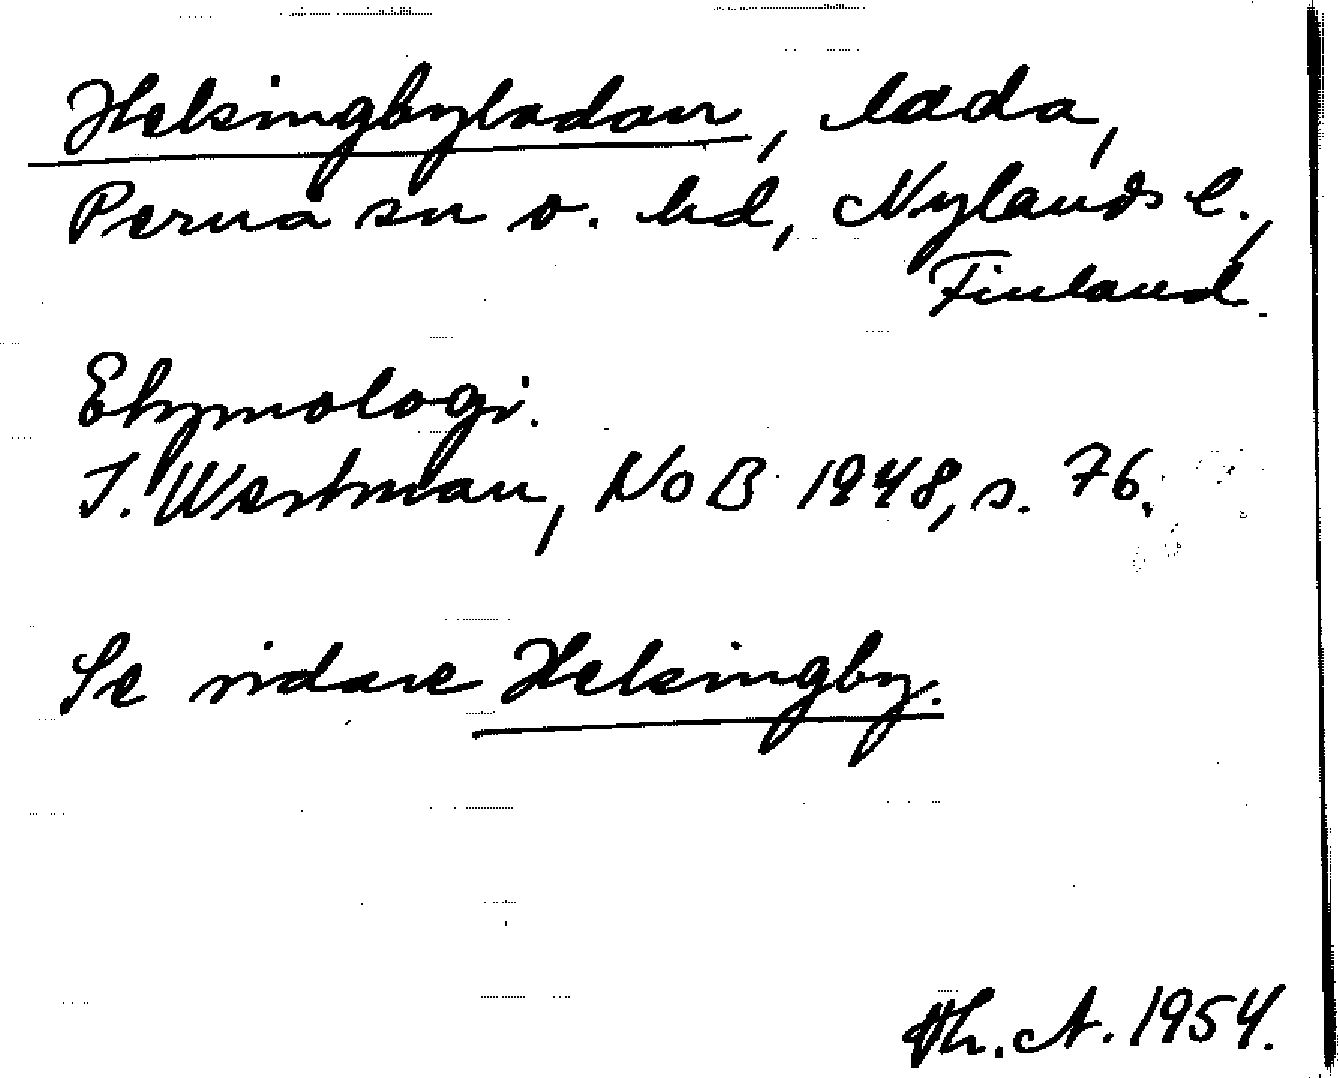 Helsingbyladan, lada,
Pernå sn o. hd, Nylands l.,
Finland.
Etymologi.
I. Westman, NoB 1948, s. 76.
Se vidare Helsingby.
Th. A. 1954.